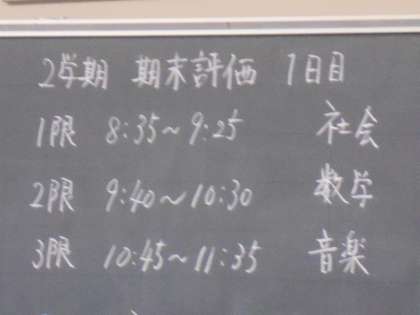 2学期 期末評価 1日目
1限 8:35～9:25 社会
2限 9:40～10:30 数学
3限 10:45～11:35 音楽